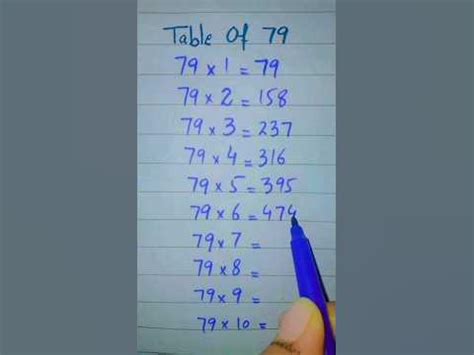 Table Of 79
79 × 1 = 79
79 × 2 = 158
79 × 3 = 237
79 × 4 = 316
79 × 5 = 395
79 × 6 = 474
79 × 7 =
79 × 8 =
79 × 9 =
79 × 10 =